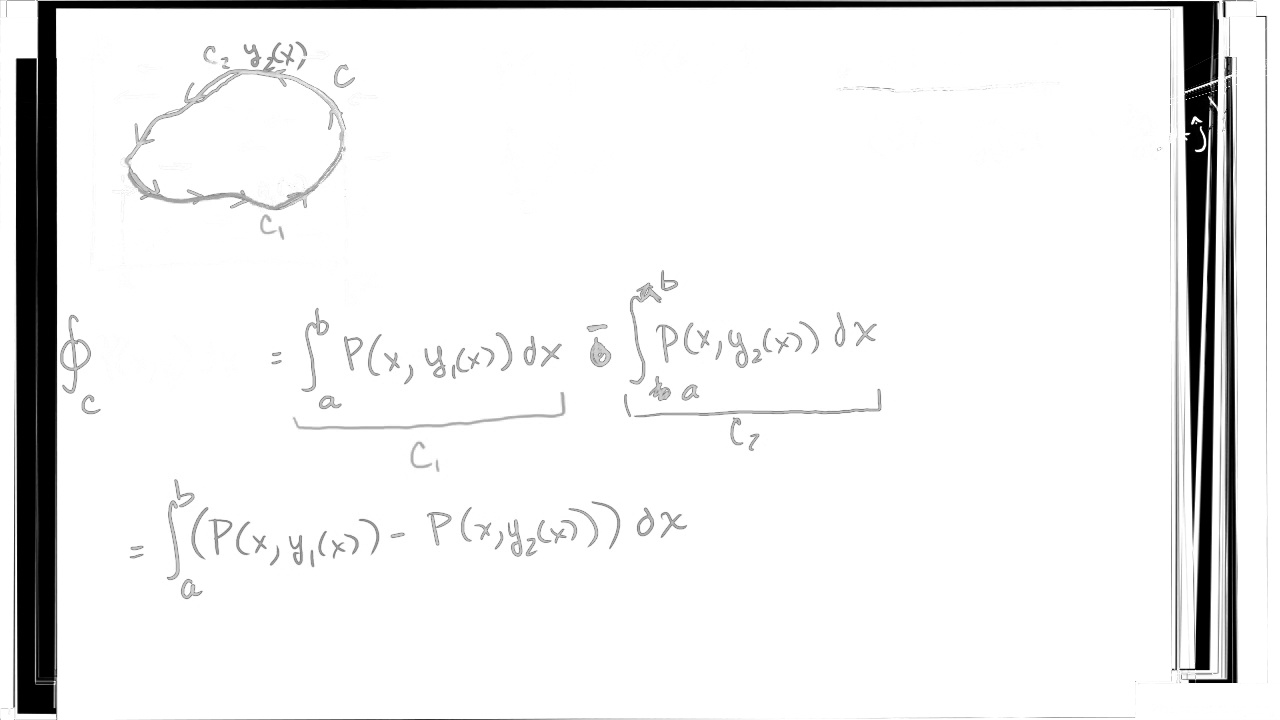 C₂ y₂(x)
C
ĵ
C₁
∮_C = ∫_a^b P(x, y₁(x)) dx - ∫_a^b P(x, y₂(x)) dx
C₁ C₂
= ∫_a^b (P(x, y₁(x)) - P(x, y₂(x))) dx